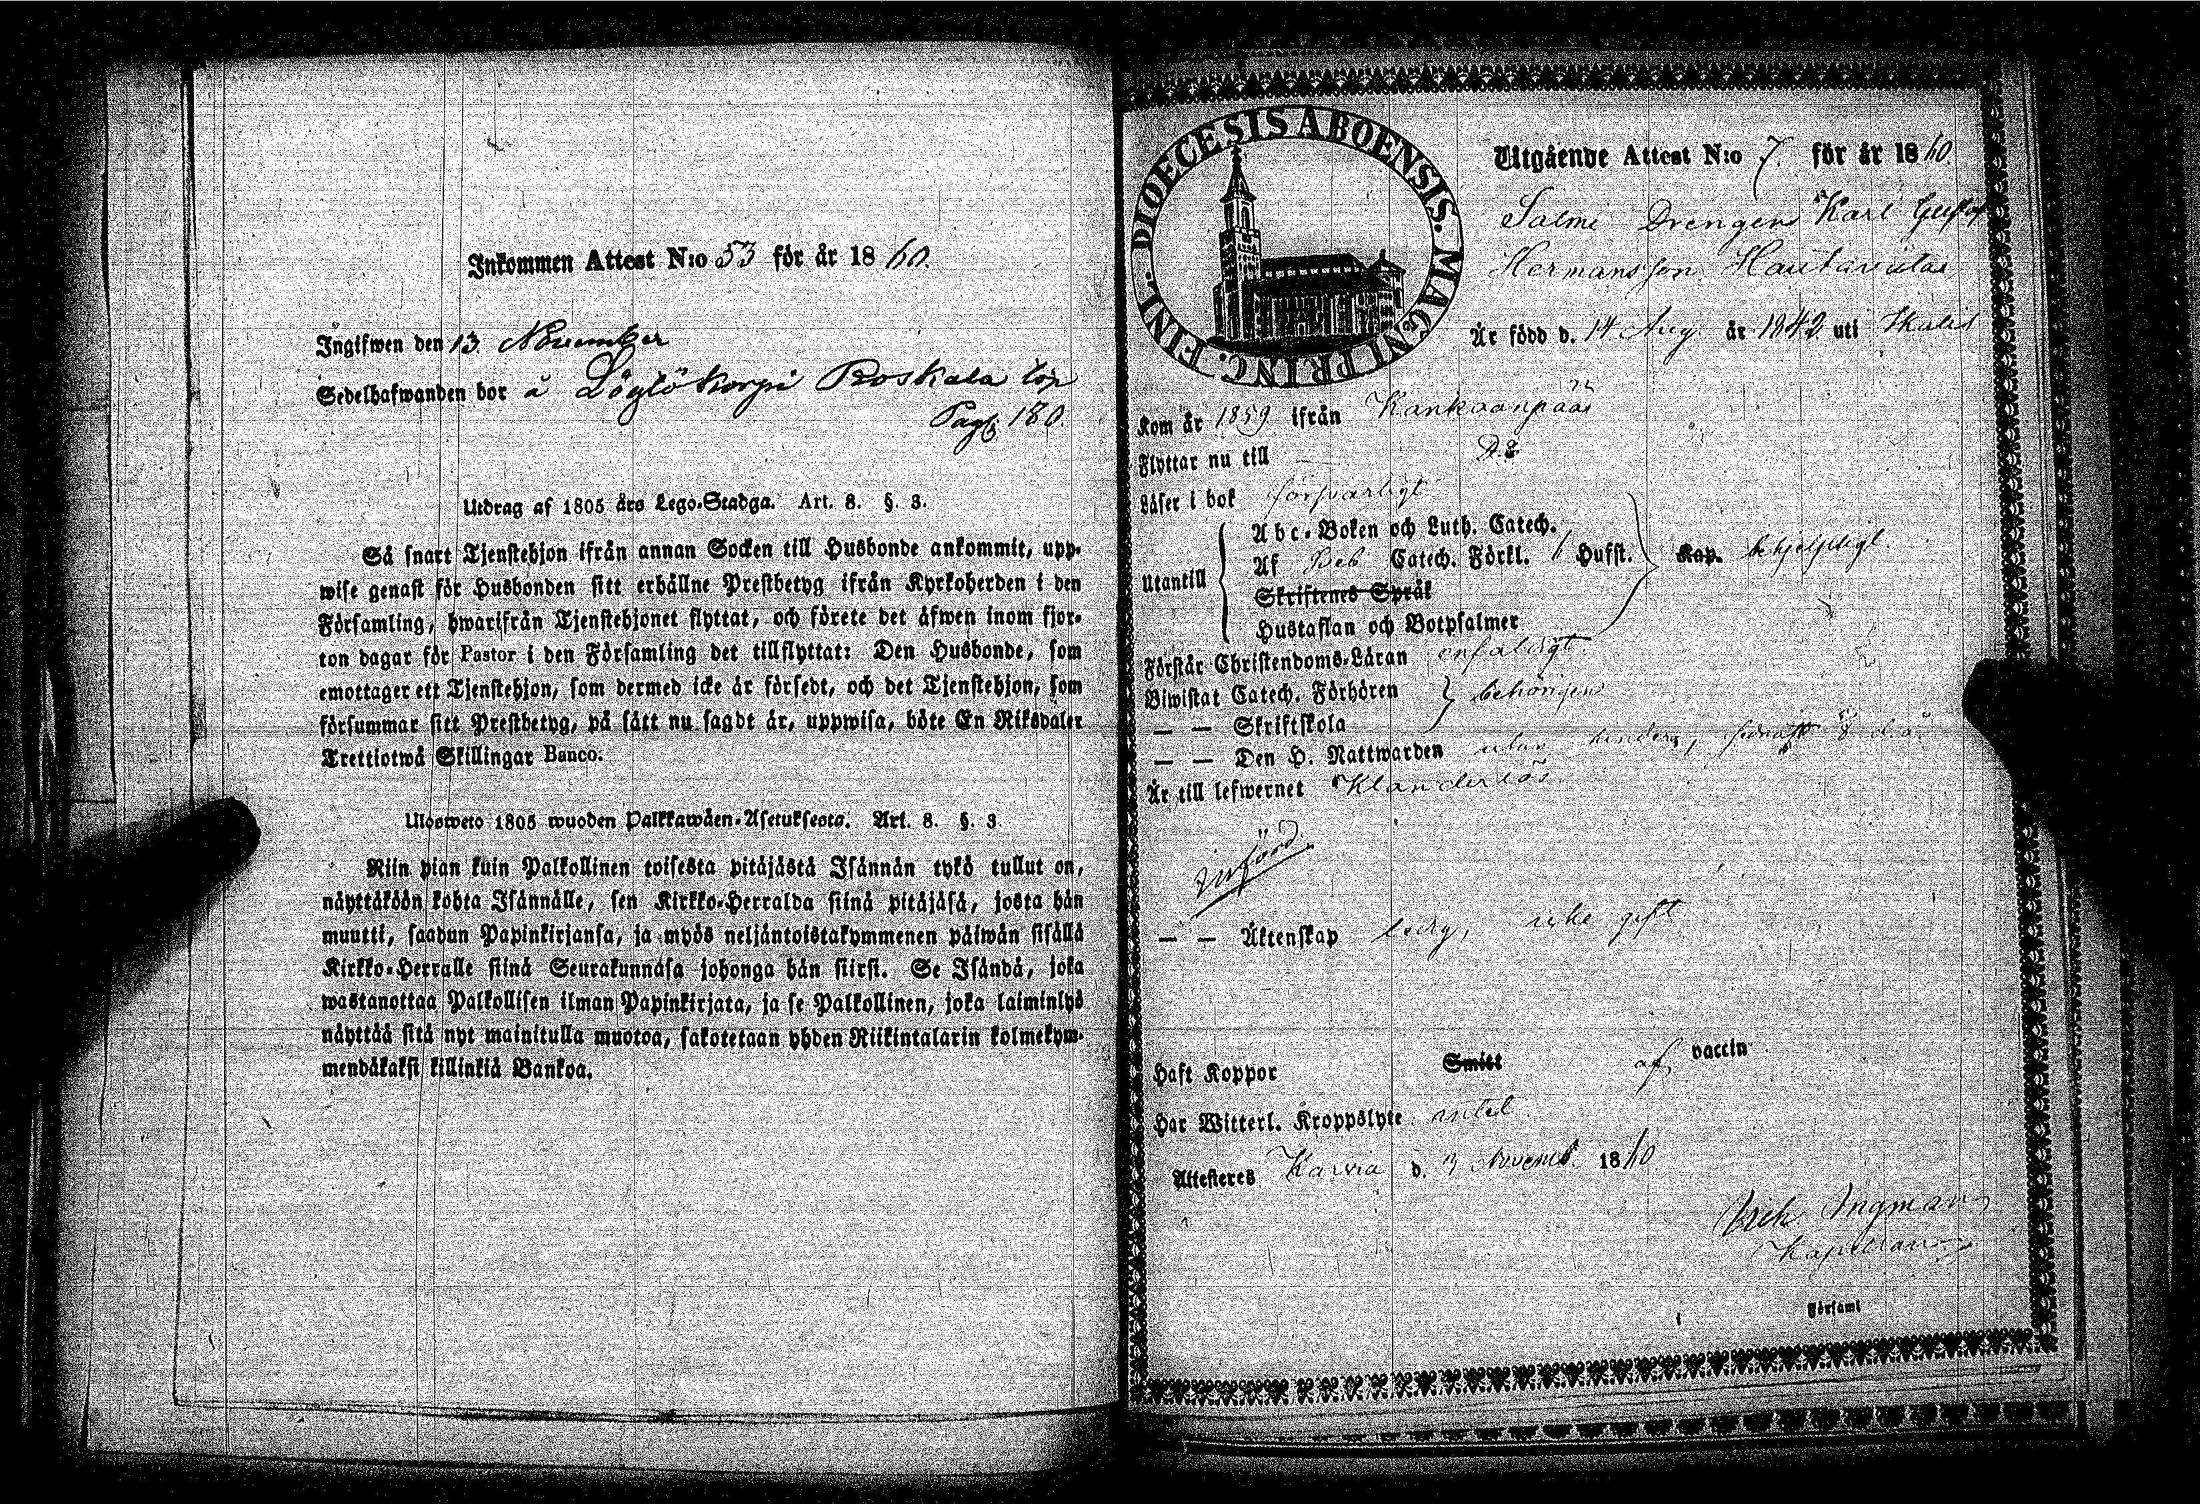 Inkommen Attest N:o 53 för år 1860.
Ingifwen den 13. November
Sedelhafwanden bor å Löytökorpi Roskala torp
Pag. 180.
Utdrag af 1805 års Lego-Stadga. Art. 8. §. 3.
Så snart Tjenstehjon ifrån annan Socken till Husbonde ankommit, upp-
wise genast för Husbonden sitt erhållne Prestbetyg ifrån Kyrkoherden i den
Församling, hwarifrån Tjenstehjonet flyttat, och förete det äfwen inom fjor-
ton dagar för Pastor i den Församling det tillflyttat: Den Husbonde, som
emottager ett Tjenstehjon, som dermed icke är försedt, och det Tjenstehjon, som
försummar sitt Prestbetyg, på sätt nu sagdt är, uppwisa, böte En Riksdaler
Trettiotwå Skillingar Banco.
Ulosweto 1805 wuoden Palkkawäen-Asetuksesta. Art. 8. §. 3.
Niin pian kuin Palkollinen toisesta pitäjästä Isännän tykö tullut on,
näyttäköön kohta Isännälle, sen Kirkko-Herralda siinä pitäjäsä, josta hän
muutti, saadun Papinkirjansa, ja myös neljäntoistakymmenen päiwän sisällä
Kirkko-Herralle siinä Seurakunnasa johonga hän siirsi. Se Isändä, joka
wastanottaa Palkollisen ilman Papinkirjata, ja se Palkollinen, joka laiminlyö
näyttää sitä nyt mainitulla muotoa, sakotetaan yhden Riikintalarin kolmekym-
mendäkaksi killinkiä Bankoa.
DIOECESIS ABOENSIS. MAGNI PRINC. FINL.
Utgående Attest N:o 7. för år 1860.
Salmi Drengen Karl Gustaf
Hermansson
Är född d. 14 Aug. år 1842 uti Ikalis
Kom år 1859 ifrån Kankaanpää
Flyttar nu till D:o
Läser i bok försvarligt
Utantill
Abc-Boken och Luth. Catech.
Af Beb Catech. Förkl. 6 Hufst.
Skriftenes Språk
Hustaflan och Botpsalmer
Kap. behjelpligt
Förstår Christendoms-Läran enfaldigt
Biwistat Catech. Förhören behörigen
— — Skriftskola
— — Den H. Nattwarden utan hinder, senast
Är till lefwernet Klanderlös
införd.
— — Äktenskap ledig, icke gift
Haft Koppor Smitt af vaccin
Har Witterl. Kroppslyte intet
Attesteres Karvia d. 3 Novemb. 1860
Erik Ingman
Kapellan
Församl